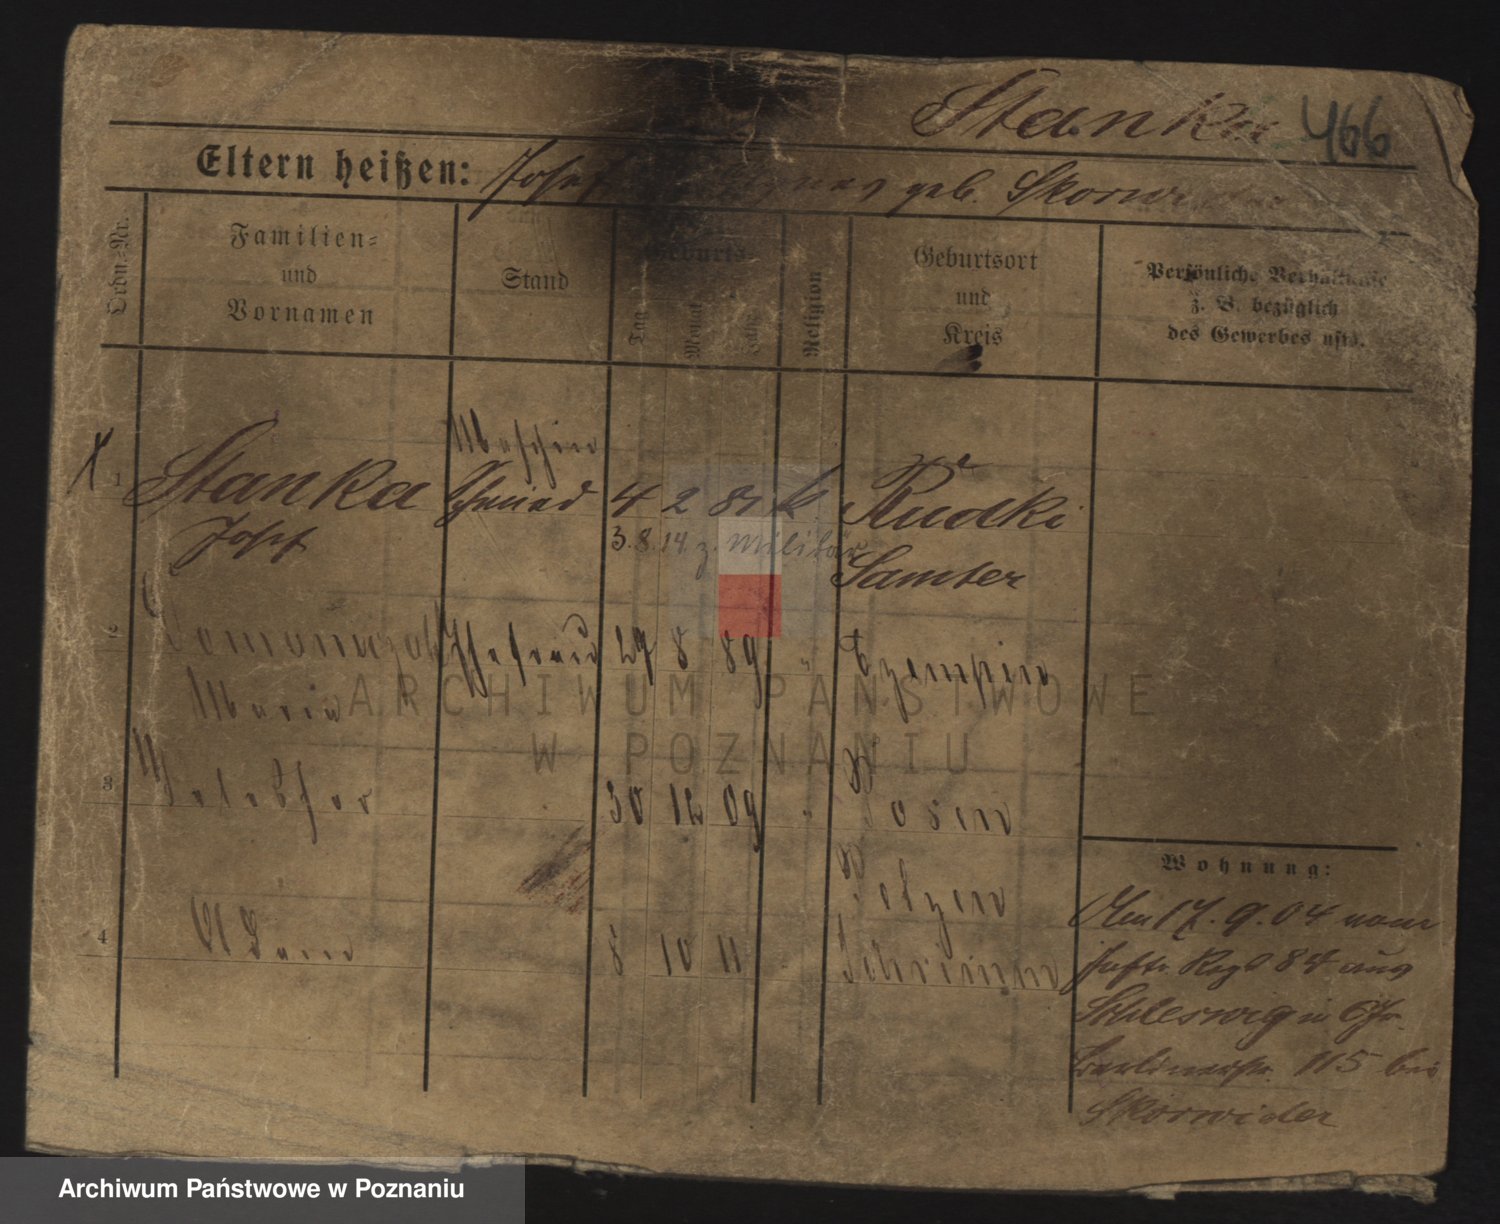 Stanka 466
Eltern heißen: Josef geb. Skorwider
Ordn.-Nr.
Familien-
und
Vornamen
Stand
Geburts-
Tag
Monat
Jahr
Religion
Geburtsort
und
Kreis
Persönliche Verhältnisse
z. B. bezüglich
des Gewerbes usw.
Maschin
1 Stanka Schmied 4 2 81 k Rudki
Josef 3.8.14. z. Militär
Samter
2 Ehefrau 27 8 89 " Czempin
Maria
3 30 12 09 " Posen
Adam
4 8 10 11 Schrimm
Wohnung:
Am 17.9.04 vom
Inftr. Regt 84 aus
Schleswig in
Berlinerstr. 115 bei
Skorwider
ARCHIWUM PAŃSTWOWE
W POZNANIU
Archiwum Państwowe w Poznaniu